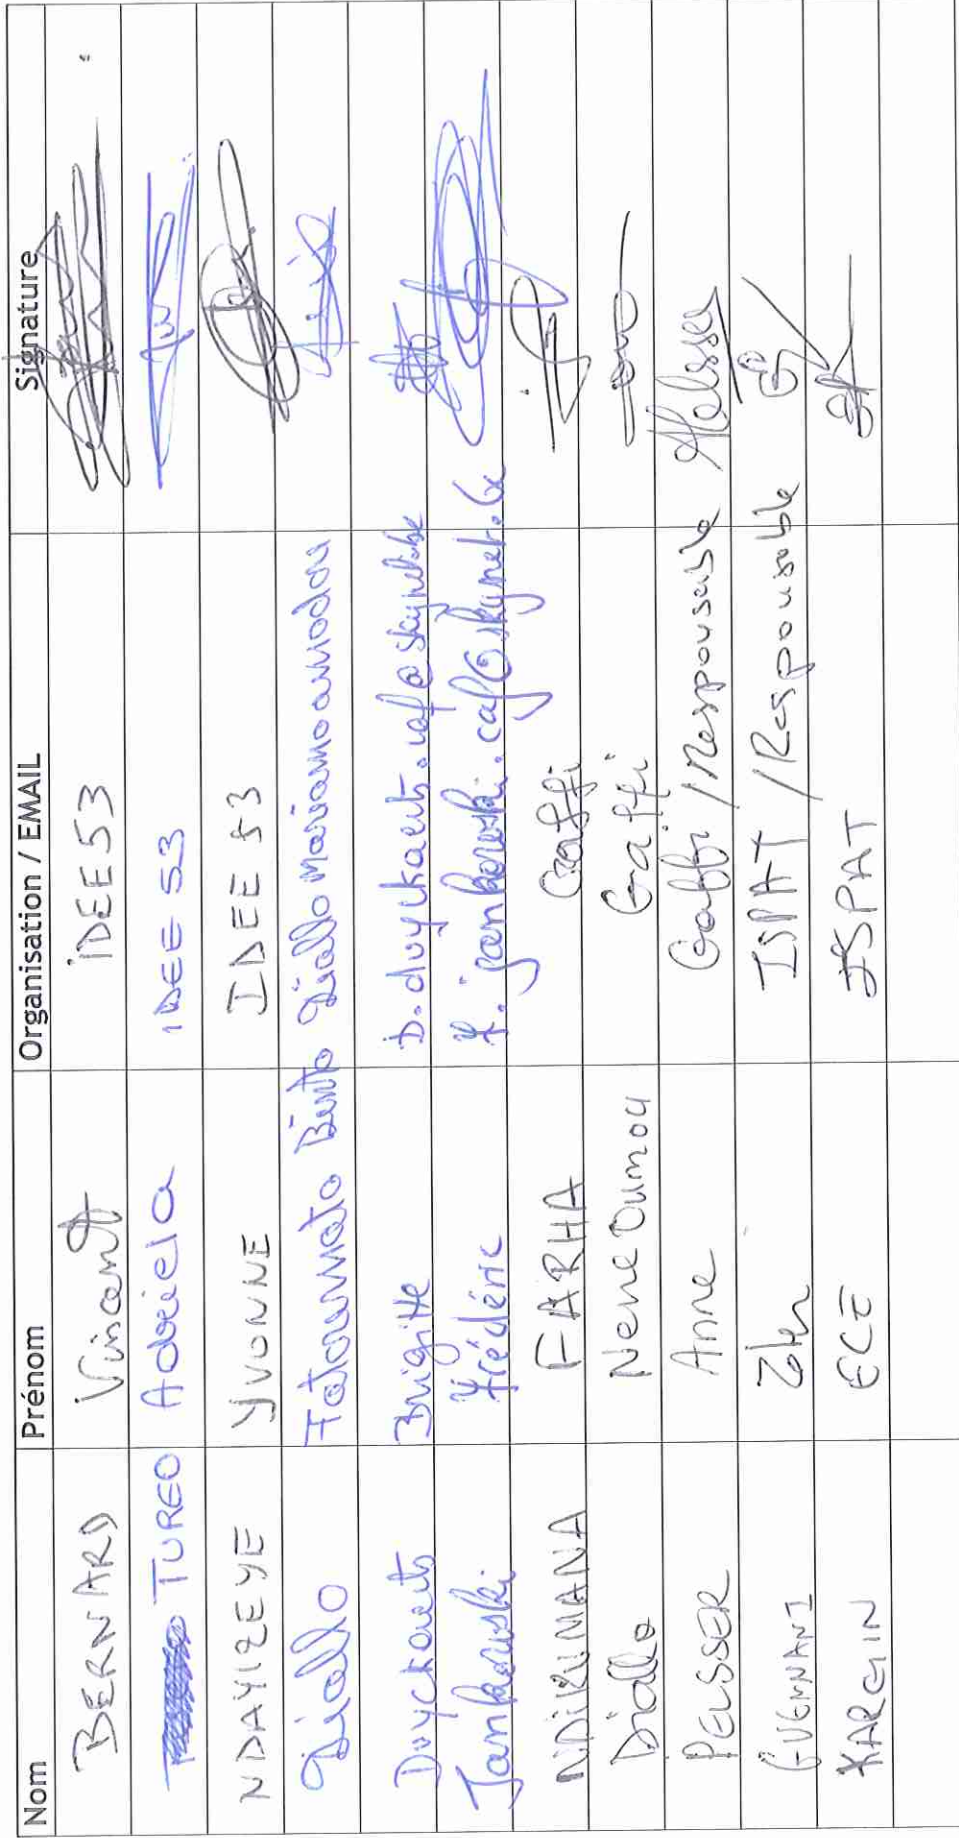 Nom Prénom Organisation / EMAIL Signature
BERNARD Vincent iDEE53
TUREO Adriela IDEE 53
NDAYIZEYE YVONNE IDEE 53
Diallo Fatoumata Binta Diallo Mariamo amadou
Duyckaerts Brigitte b.duyckaerts.caf@skynet.be
Jankowski Frédéric f.jankowski.caf@skynet.be
NDIKUMANA FARHA Gaffi
Diallo Nene Oumou Gaffi
PELSSER Anne Gaffi / Responsable APelsser
GUENNANI ISPAT / Responsable
KARGIN ECE ISPAT